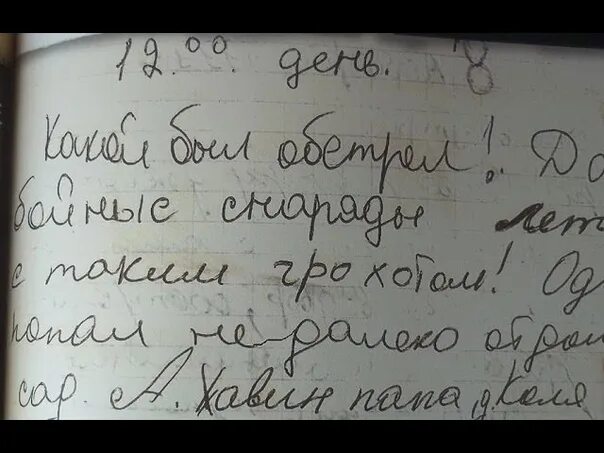 12.00. день. 8
Какой был обстрел! До
бойные снаряды лет
с таким грохотом! Од
попал не-далеко отдом
сад. А. Хавин папа, д. Коля